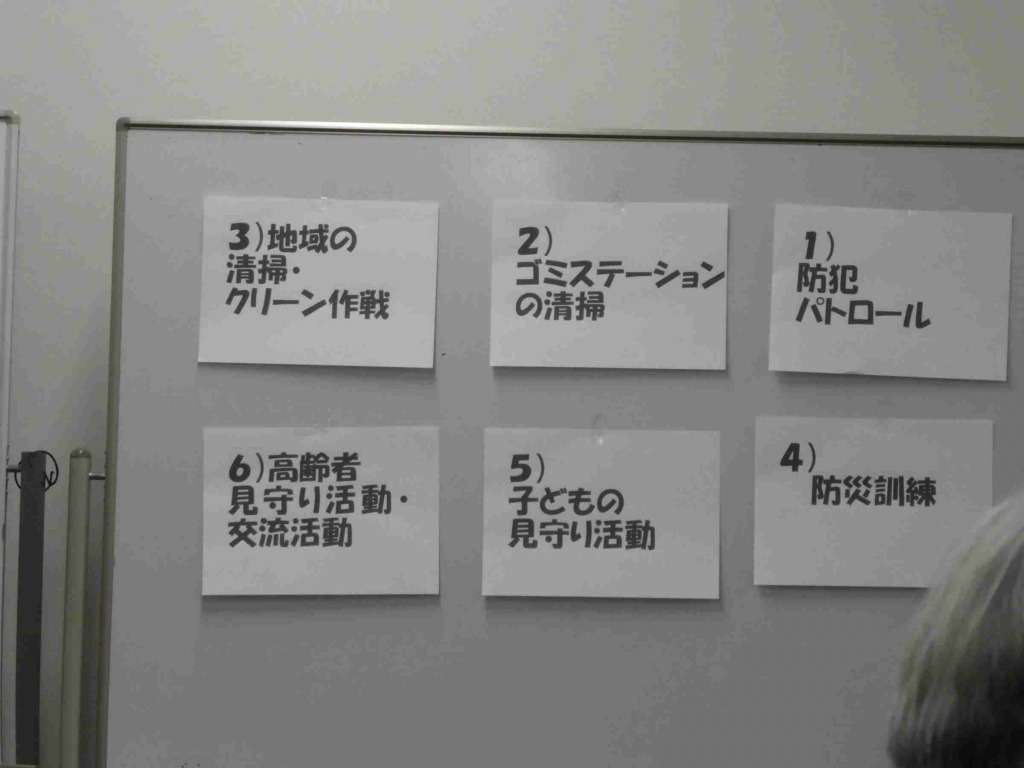 1)
防犯
パトロール
2)
ゴミステーション
の清掃
3)地域の
清掃・
クリーン作戦
4)
防災訓練
5)
子どもの
見守り活動
6)高齢者
見守り活動・
交流活動